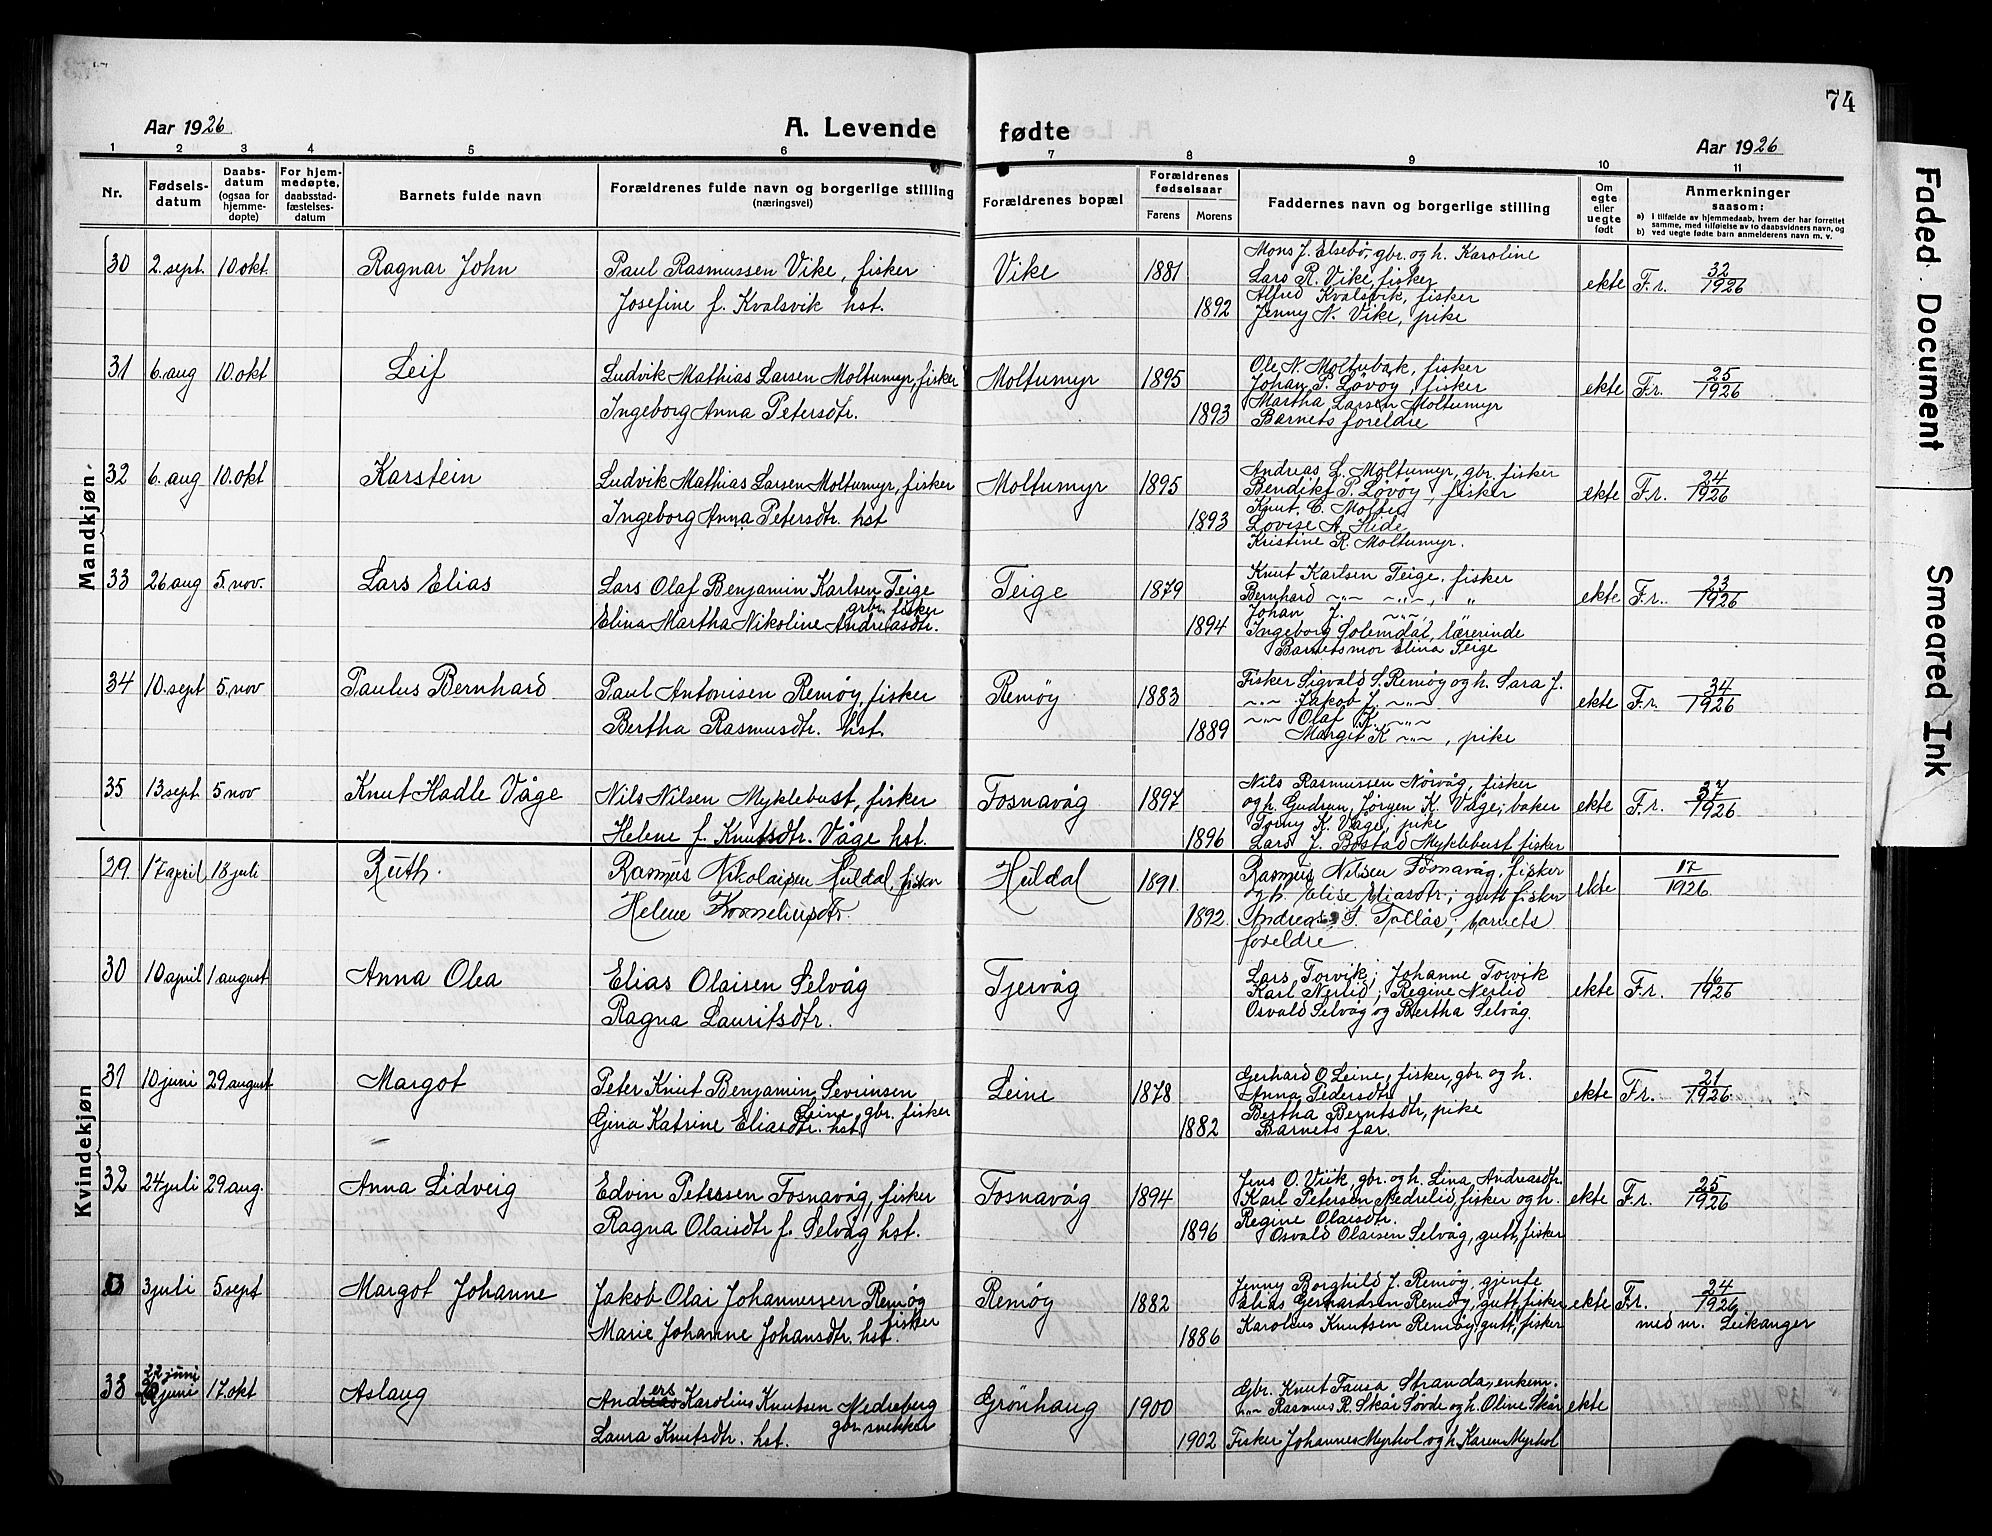 74
Aar 1926
A. Levende fødte
Aar 1926
1 2 3 4 5 6 7 8 9 10 11
Nr.
Fødsels-
datum
Daabs-
datum
(ogsaa for
hjemme-
døpte)
For hjem-
medøpte,
daabsstad-
fæstelses-
datum
Barnets fulde navn
Forældrenes fulde navn og borgerlige stilling
(næringsvei)
Forældrenes bopæl
Forældrenes
fødselsaar
Farens
Morens
Faddernes navn og borgerlige stilling
Om
egte
eller
uegte
født
Anmerkninger
saasom:
a) I tilfælde av hjemmedaab, hvem der har forrettet
samme, med tilføielse av to daabsvidners navn, og
b) ved uegte fødte barn anmelderens navn m. v.
Mandkjøn.
30 2. sept. 10. okt. Ragnar John
Paul Rasmussen Vike, fisker
Josefine f. Kvalsvik hst.
Vike 1881 1892
Mons J. Elsebø, gbr. og h. Karoline
Lars R. Vike, fisker
Alfred Kvalsvik, fisker
Jenny N. Vike, pike
ekte F.r. 32/1926
31 6. aug 10. okt Leif
Ludvik Mathias Larsen Moltumyr, fisker
Ingeborg Anna Petersdtr.
Moltumyr 1895 1893
Ole N. Moltubak, fisker
Johan P. Løvøy, fisker
Martha Larsen Moltumyr
Barnets foreldre
ekte F.r. 25/1926
32 6. aug 10. okt Karstein
Ludvik Mathias Larsen Moltumyr, fisker
Ingeborg Anna Petersdtr. hst
Moltumyr 1895 1893
Andreas L. Moltumyr, gbr. fisker
Bendikt P. Løvøy fisker
Knut C. Moltu
Lovise A. Hide
Kristine R. Moltumyr.
ekte F.r. 24/1926
33 26 aug 5. nov. Lars Elias
Lars Olaf Benjamin Karlsen Teige
gbr. fisker
Elina Martha Nikoline Andreasdtr.
Teige 1879 1894
Knut Karlsen Teige, fisker
Bernhard ~"~ ~"~, "
Johan J. ~"~,
Ingeborg Solemdal, lærerinde
Barnets mor Elina Teige
ekte F.r. 23/1926
34 10. sept 5. nov Paulus Bernhard
Paul Antonisen Remøy, fisker
Bertha Rasmusdtr. hst.
Remøy 1883 1889
Fisker Sigvald S. Remøy og h. Sara J.
~"~ Jakob J. ~"~
~"~ Olaf K. ~"~
Margit K ~"~, pike
ekte F.r. 34/1926
35 13 sept 5 nov Knut Hadle Våge
Nils Nilsen Myklebust, fisker
Helene f. Knutsdtr. Våge hst.
Fosnavåg 1897 1896
Nils Rasmussen Nørvåg, fisker
og h. Gudrun, Jørgen K. Våge, baker
Torny K. Våge, pike
Lars J. Bøstad Myklebust fisker
ekte F.r. 37/1926
Kvindekjøn
29. 17 april 18 juli Ruth.
Rasmus Nikolaisen Huldal, fisker
Helene Korneliusdtr.
Huldal 1891. 1892
Rasmus Nilsen Fosnavåg, fisker
og h. Elise Eliasdtr; gutt fisker
Andreas S. Tollås; barnets
foreldre
ekte 17/1926
30 10 april 1 august Anna Olea
Elias Olaisen Selvåg
Ragna Lauritsdtr.
Tjervåg
Lars Torvik; Johanne Torvik
Karl Nerlid; Regine Nerlid
Osvald Selvåg og Bertha Selvåg.
ekte F.r. 16/1926
31 10 juni 29 august Margot
Peter Knut Benjamin Sevrinsen
Leine, gbr. fisker
Gina Katrine Eliasdtr. hst.
Leine 1878 1882
Gerhard O Leine, fisker, gbr. og h.
Anna Pedersdtr
Bertha Berntsdtr, pike
Barnets far.
ekte Fr. 21/1926
32 24 juli 29 aug. Anna Lidveig
Edvin Petersen Fosnavåg, fisker
Ragna Olaisdtr f. Selvåg hst.
Fosnavåg 1894 1896
Jens O. Viik, gbr. og h. Lina Andreasdtr.
Karl Petersen Nedrelid, fisker og h.
Regine Olaisdtr.
Osvald Olaisen Selvåg, gutt, fisker
ekte F.r. 25/1926
3 juli 5 sept Margot Johanne
Jakob Olai Johannessen Remøy
fisker
Marie Johanne Johansdtr. hst.
Remøy 1882 1886
Jenny Borghild J. Remøy, gjente
Elias Gerhardsen Remøy, gutt, fisker
Karolius Knutsen Remøy, gutt, fisker
ekte Fr. 24/1926
med nr. Leikanger
33 22 juni 17. okt Aslaug
Anders Karolius Knutsen Nedreberg
gbr. snekker
Laura Knutsdtr. hst.
Grönhaug 1900 1902
Gbr. Knut Fausa, Stranda, enkem.
~"~ Rasmus R. Skår Søvde og h. Oline Skår
Fisker Johannes Myrhol og h. Karen Myrhol
ekte
Faded Document
Smeared Ink